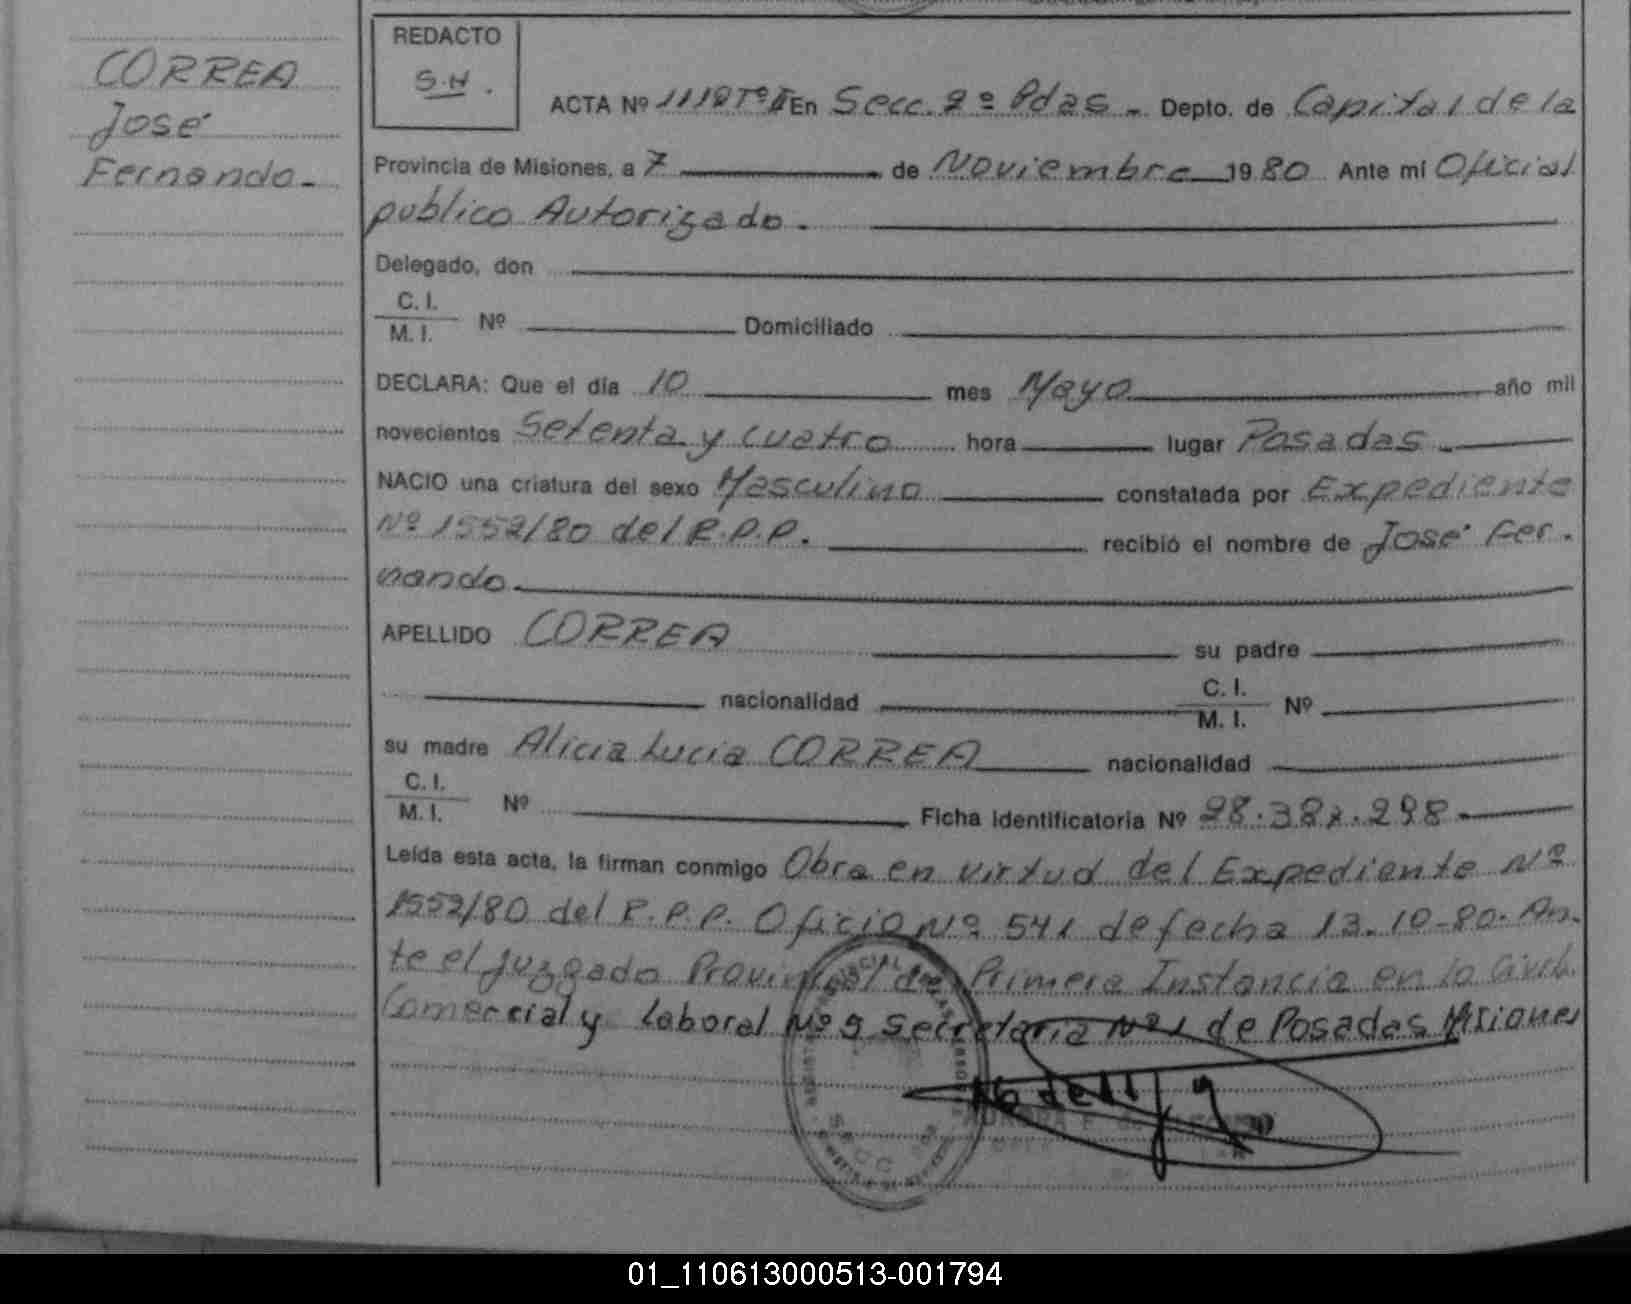 CORREA
José
Fernando.-
REDACTO
S.H.
ACTA Nº 1112 Tº II En Secc. 2º Pdas.- Depto. de Capital de la
Provincia de Misiones, a 7 de Noviembre 1980 Ante mi Oficial
publico Autorizado.
Delegado, don
C. I.
M. I. Nº Domiciliado
DECLARA: Que el día 10 mes Mayo año mil
novecientos Setenta y cuatro hora lugar Posadas.-
NACIO una criatura del sexo Masculino constatada por Expediente
Nº 1552/80 del R.P.P. recibió el nombre de José Fer-
nando.
APELLIDO CORREA su padre
nacionalidad C. I. M. I. Nº
su madre Alicia Lucia CORREA nacionalidad
C. I.
M. I. Nº Ficha Identificatoria Nº
Leída esta acta, la firman conmigo Obra en virtud del Expediente Nº
1552/80 del R.P.P. Oficio Nº 541 de fecha 13-10-80. An-
te el Juzgado Provincial de Primera Instancia en lo Civil.
Comercial y Laboral Nº Secretaria Nº 1 de Posadas Misiones
01_110613000513-001794